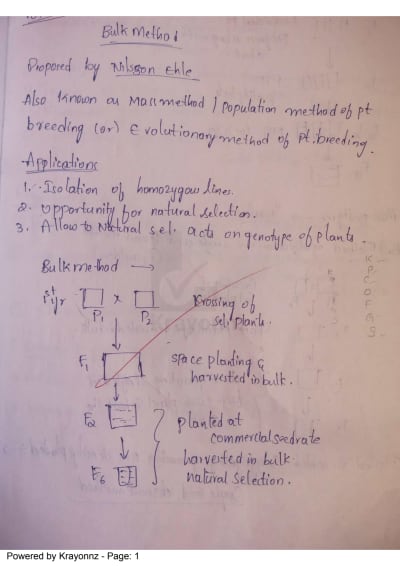 Bulk Method
Proposed by Nilsson Ehle
Also known as Mass method / population method of pt
breeding (or) Evolutionary method of pt. breeding.
Applications
1. Isolation of homozygous lines.
2. opportunity for natural selection.
3. Allow to Natural sel. acts on genotype of plants.
Bulk method →
1st yr P1 x P2 Krossing of
sel. plants.
F1 space planting &
harvested in bulk.
F2 planted at
commercial seedrate
harvested in bulk
F6 natural selection.
K
P
C
O
F
S
Powered by Krayonnz - Page: 1